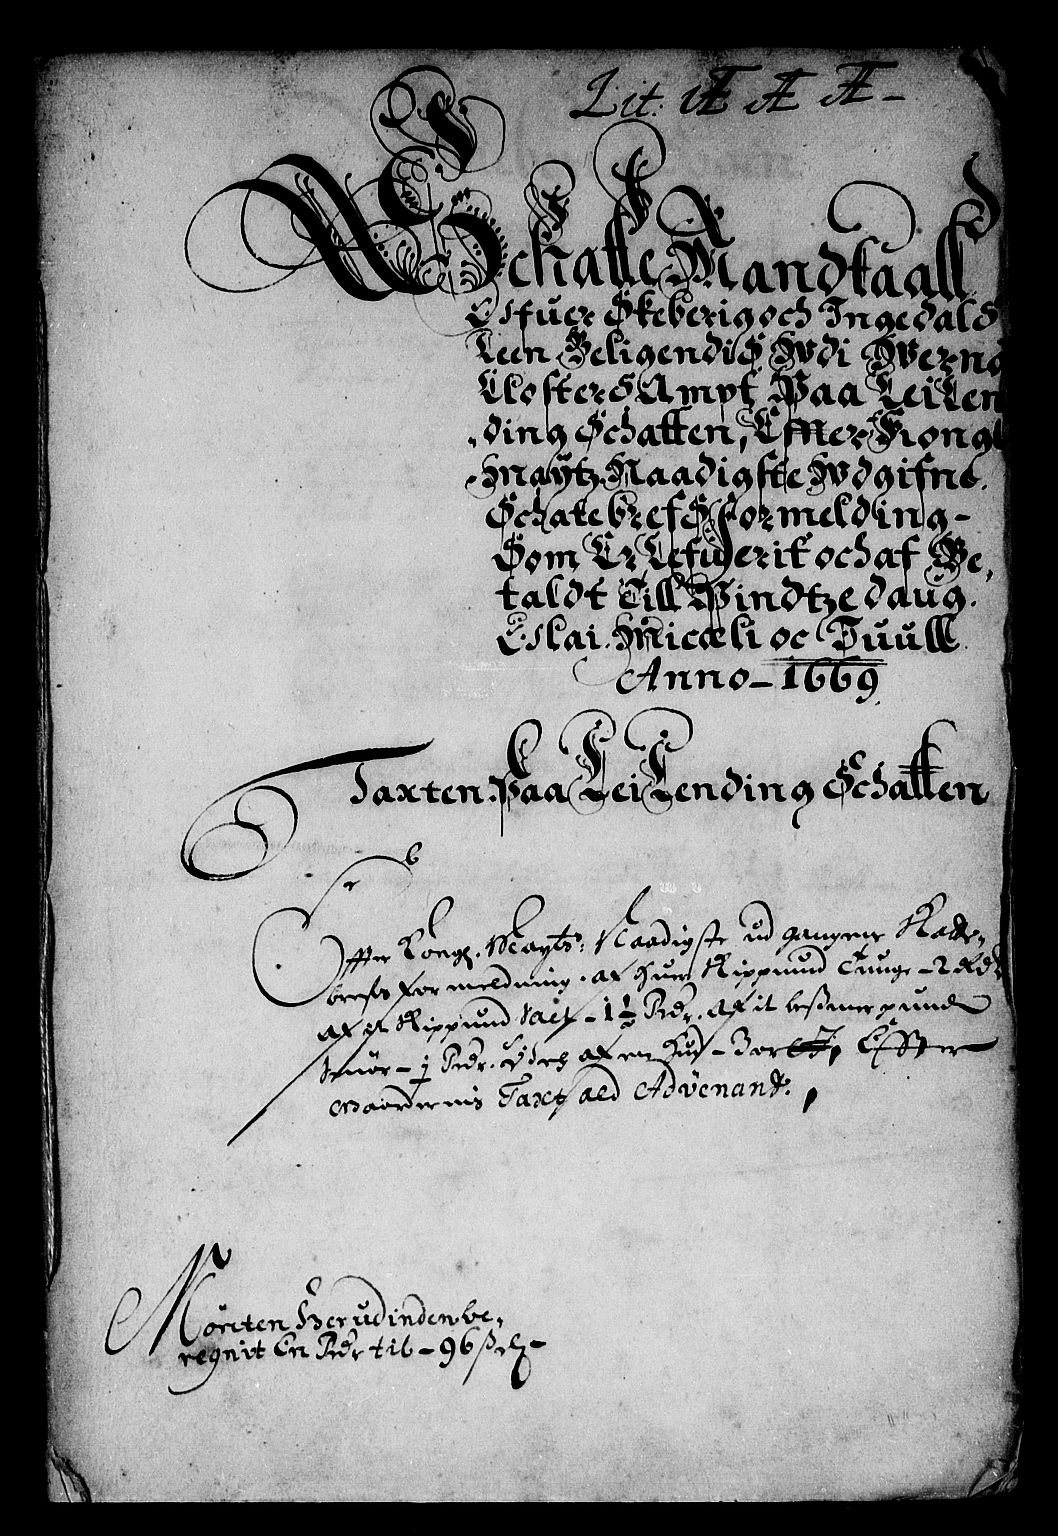 Lit: Æ Æ Æ –
Schatte Mandtaall
Ofuer Skeberig och Ingedald
Leen Beligendis Wdi Werne
Closters Ampt Paa Leilen
ding Schatten, Effter Kongl
Maÿtz Naadigste Wdgifne.
Schatebrefs Formelding –
Som Er Lefuerit och af Be,
taldt Till Pindtzedaug.
Oslai. Micæli oc Juull
Anno – 1669
Taxten Paa Leilending Schatten
Effter Kongl. Mayts: Naadigste ud gangene Skatte,
brefs formelding. af huer Skippund Tunge – 2 Rdr
af it Skippund Salt – 1½ Rdr. af it beszmerpund
Smör – ½ Rdr. Och af en Hud – Effter
Taxt ald Advenandt.
Mörcten Herudinden be,
regnit En Rdr til – 96 sz